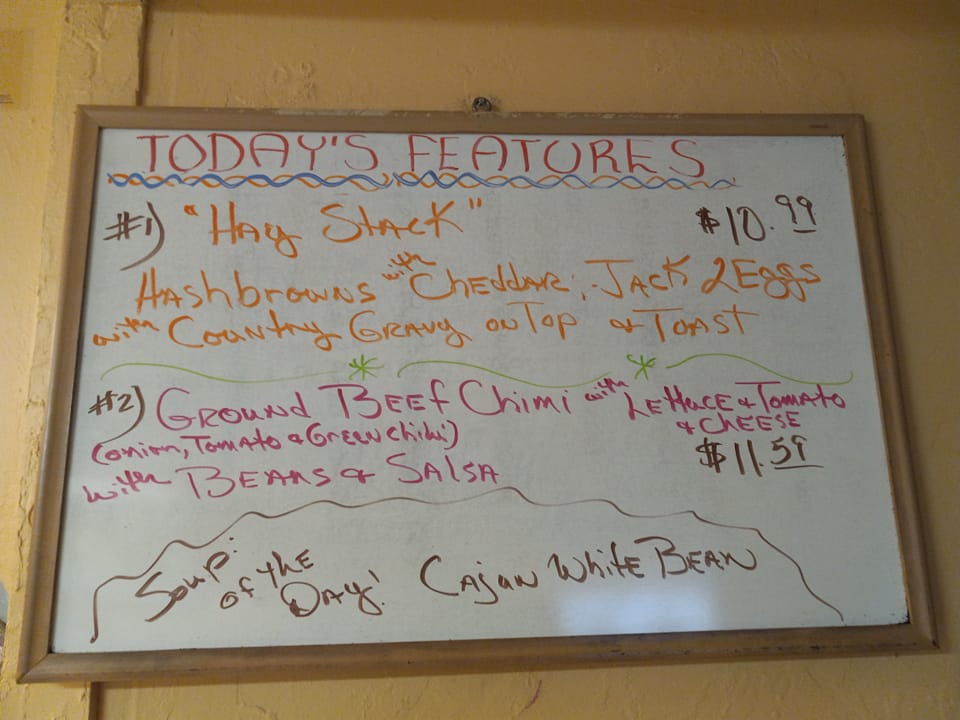 TODAY'S FEATURES
#1) "HAY STACK" $10.99
HASHBROWNS with CHEDDAR, JACK 2 Eggs
with COUNTRY GRAVY ON TOP & TOAST
#2) GROUND BEEF CHIMI with LETTUCE & TOMATO
& CHEESE
(onion, TOMATO & GREEN CHILI)
$11.59
with BEANS & SALSA
Soup of THE DAY! CAJUN WHITE BEAN